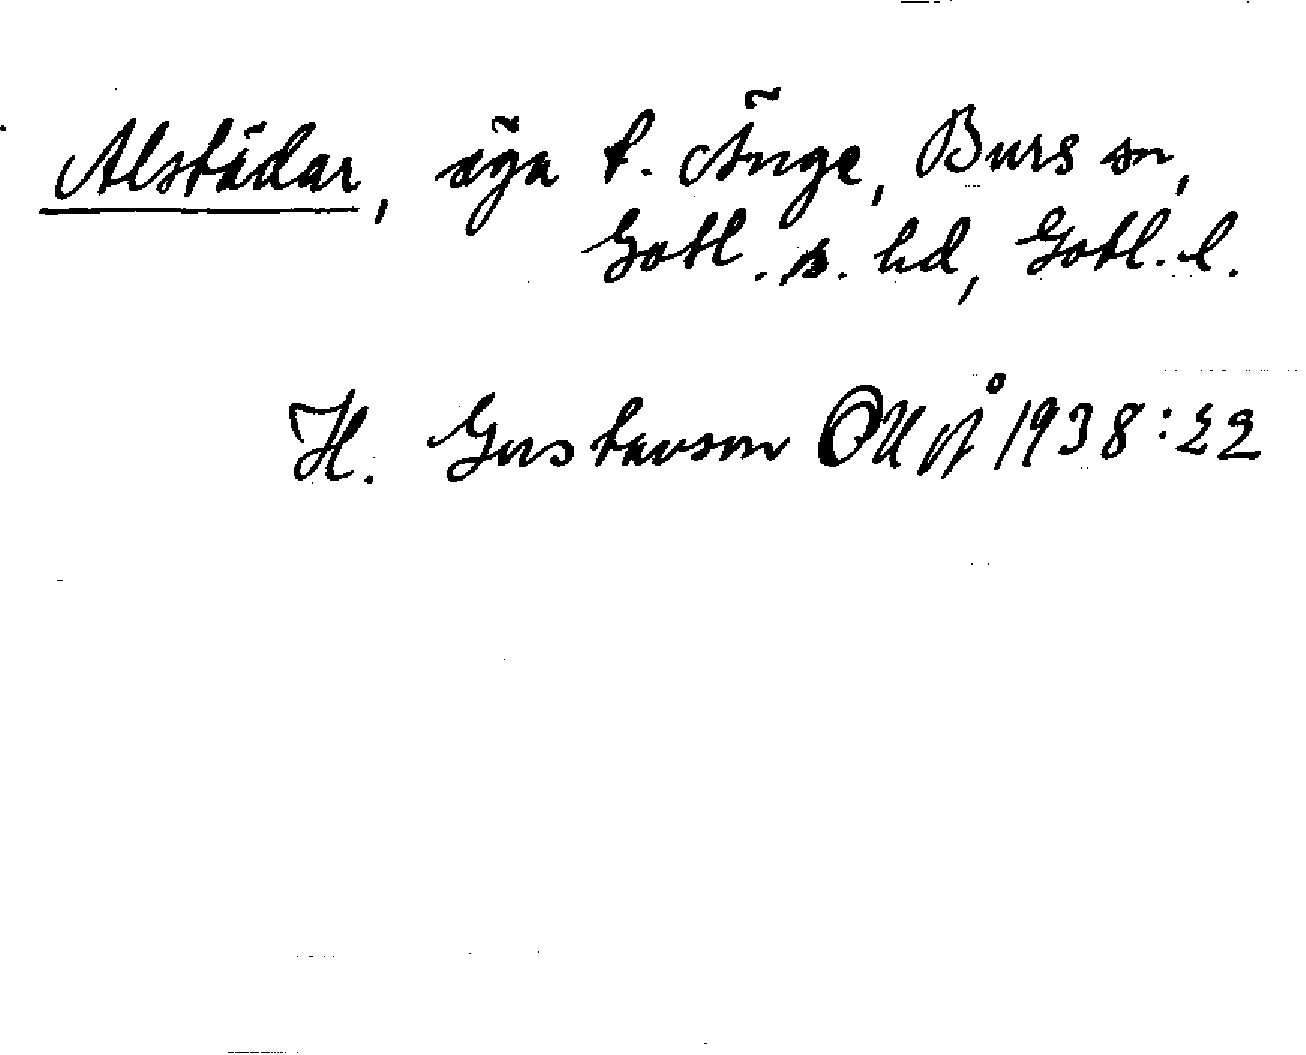 Alstädar, äga t. Änge, Burs sn,
Gotl. s. hd, Gotl. l.
H. Gustavson OUpÅ 1938:22